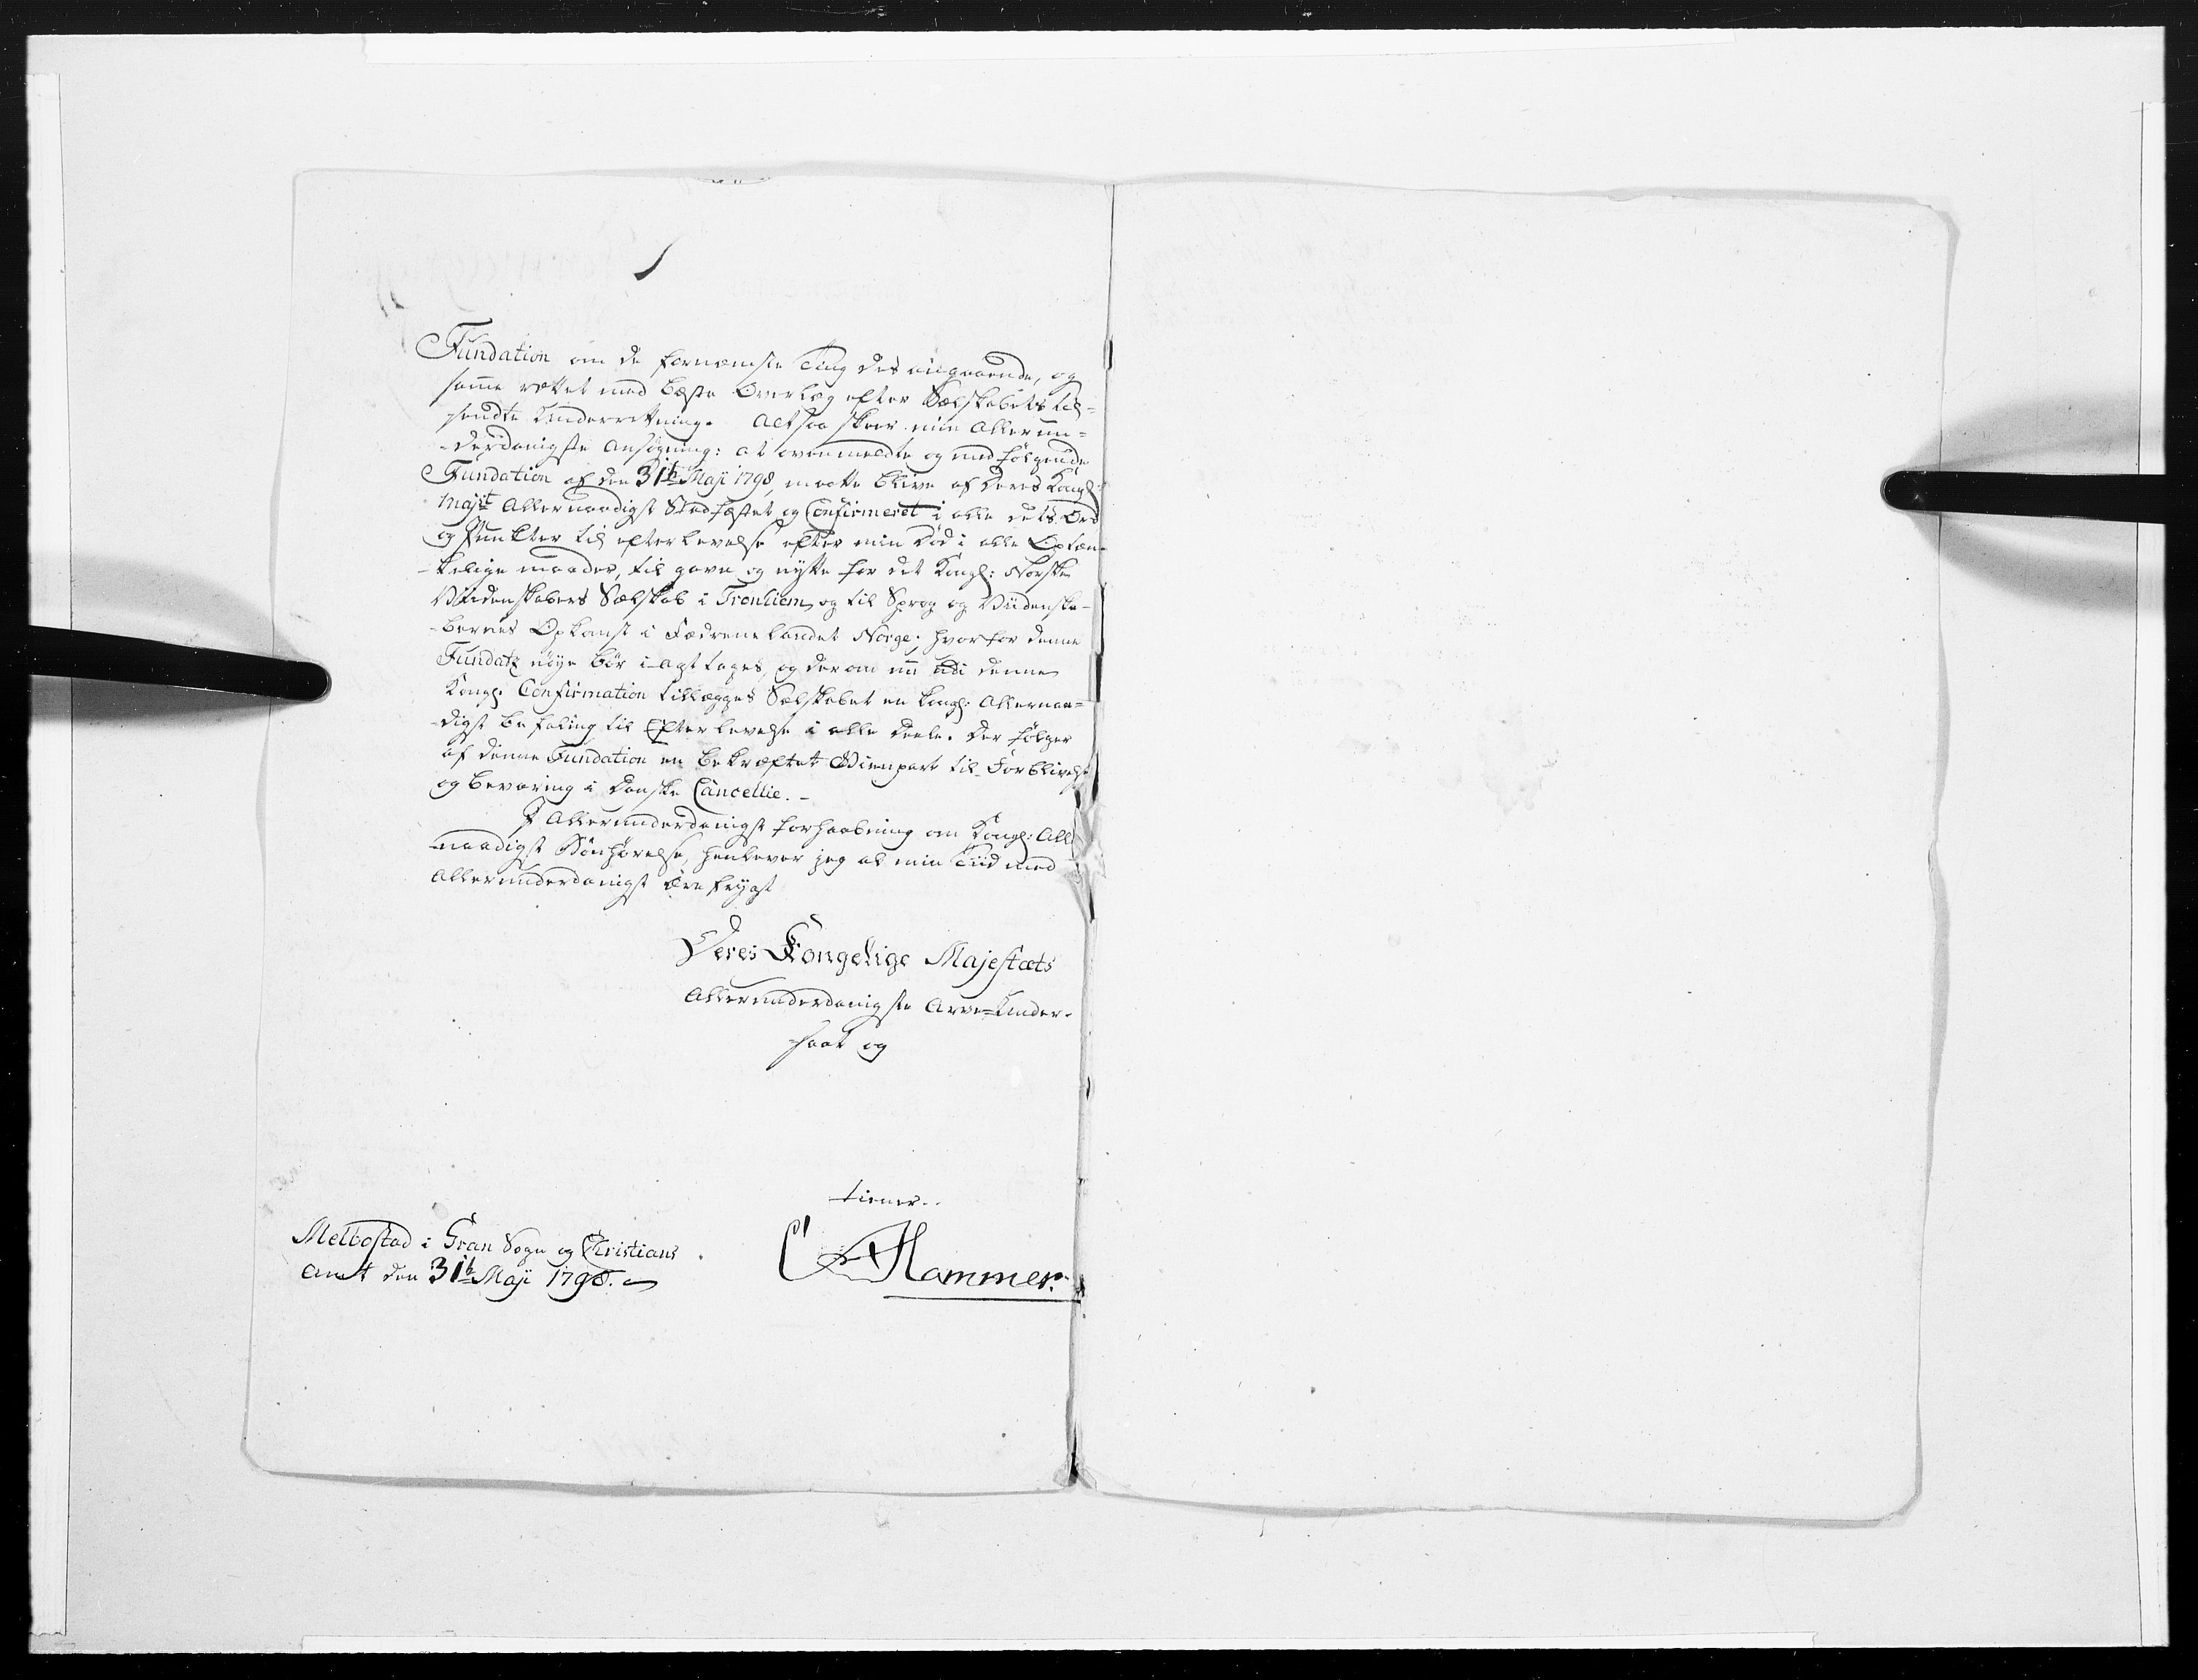 Fundation om de fornemste Ting det angaaende, og
samme rettet med beste Overlæg efter Sælskabets til-
sendte Underretning. Altsaa skeer min Allerun=
-derdanigste Ansøgning: at ovenmeldte og medfølgende
Fundation af den 31te Maji 1798, maatte blive af Deres Kongl:
Majst Allernaadigst Stadfæstet og Confirmeret i alle dets Ord
og Punkter til efterlevelse efter min Død i alle Optæn-
-kelige maader, til gavn og nytte for det Kongl: Norske
Videnskabers Sælskab i Tronhiem, og til Sprog og Viidenska-
-bernes Opkomst i Fædrenelandet Norge; hvorfor denne
Fundatz nøye bør i-agttages, og derom nu udi denne
Kongl: Confirmation tillægges Sælskabet en kongl: Allernaa=
-digst befaling til Efterlevelse i alle Deele. Der følger
af denne Fundation en bekræftet Gienpart til Forblivelse
og bevaring i Danske Cancellie. -
I Allerunderdanigst forhaabning om Kongl: All
-naadigst Bønhørelse, henlever jeg al min Tiid med
Allerunderdanigst Ærefrygt
Deres Kongelige Majestæts
Allerunderdanigste Arve-Under-
-saat og
tiener.
Melbostad i Gran Sogn og Christians
Amt den 31te Maji 1798.
C Hammer.